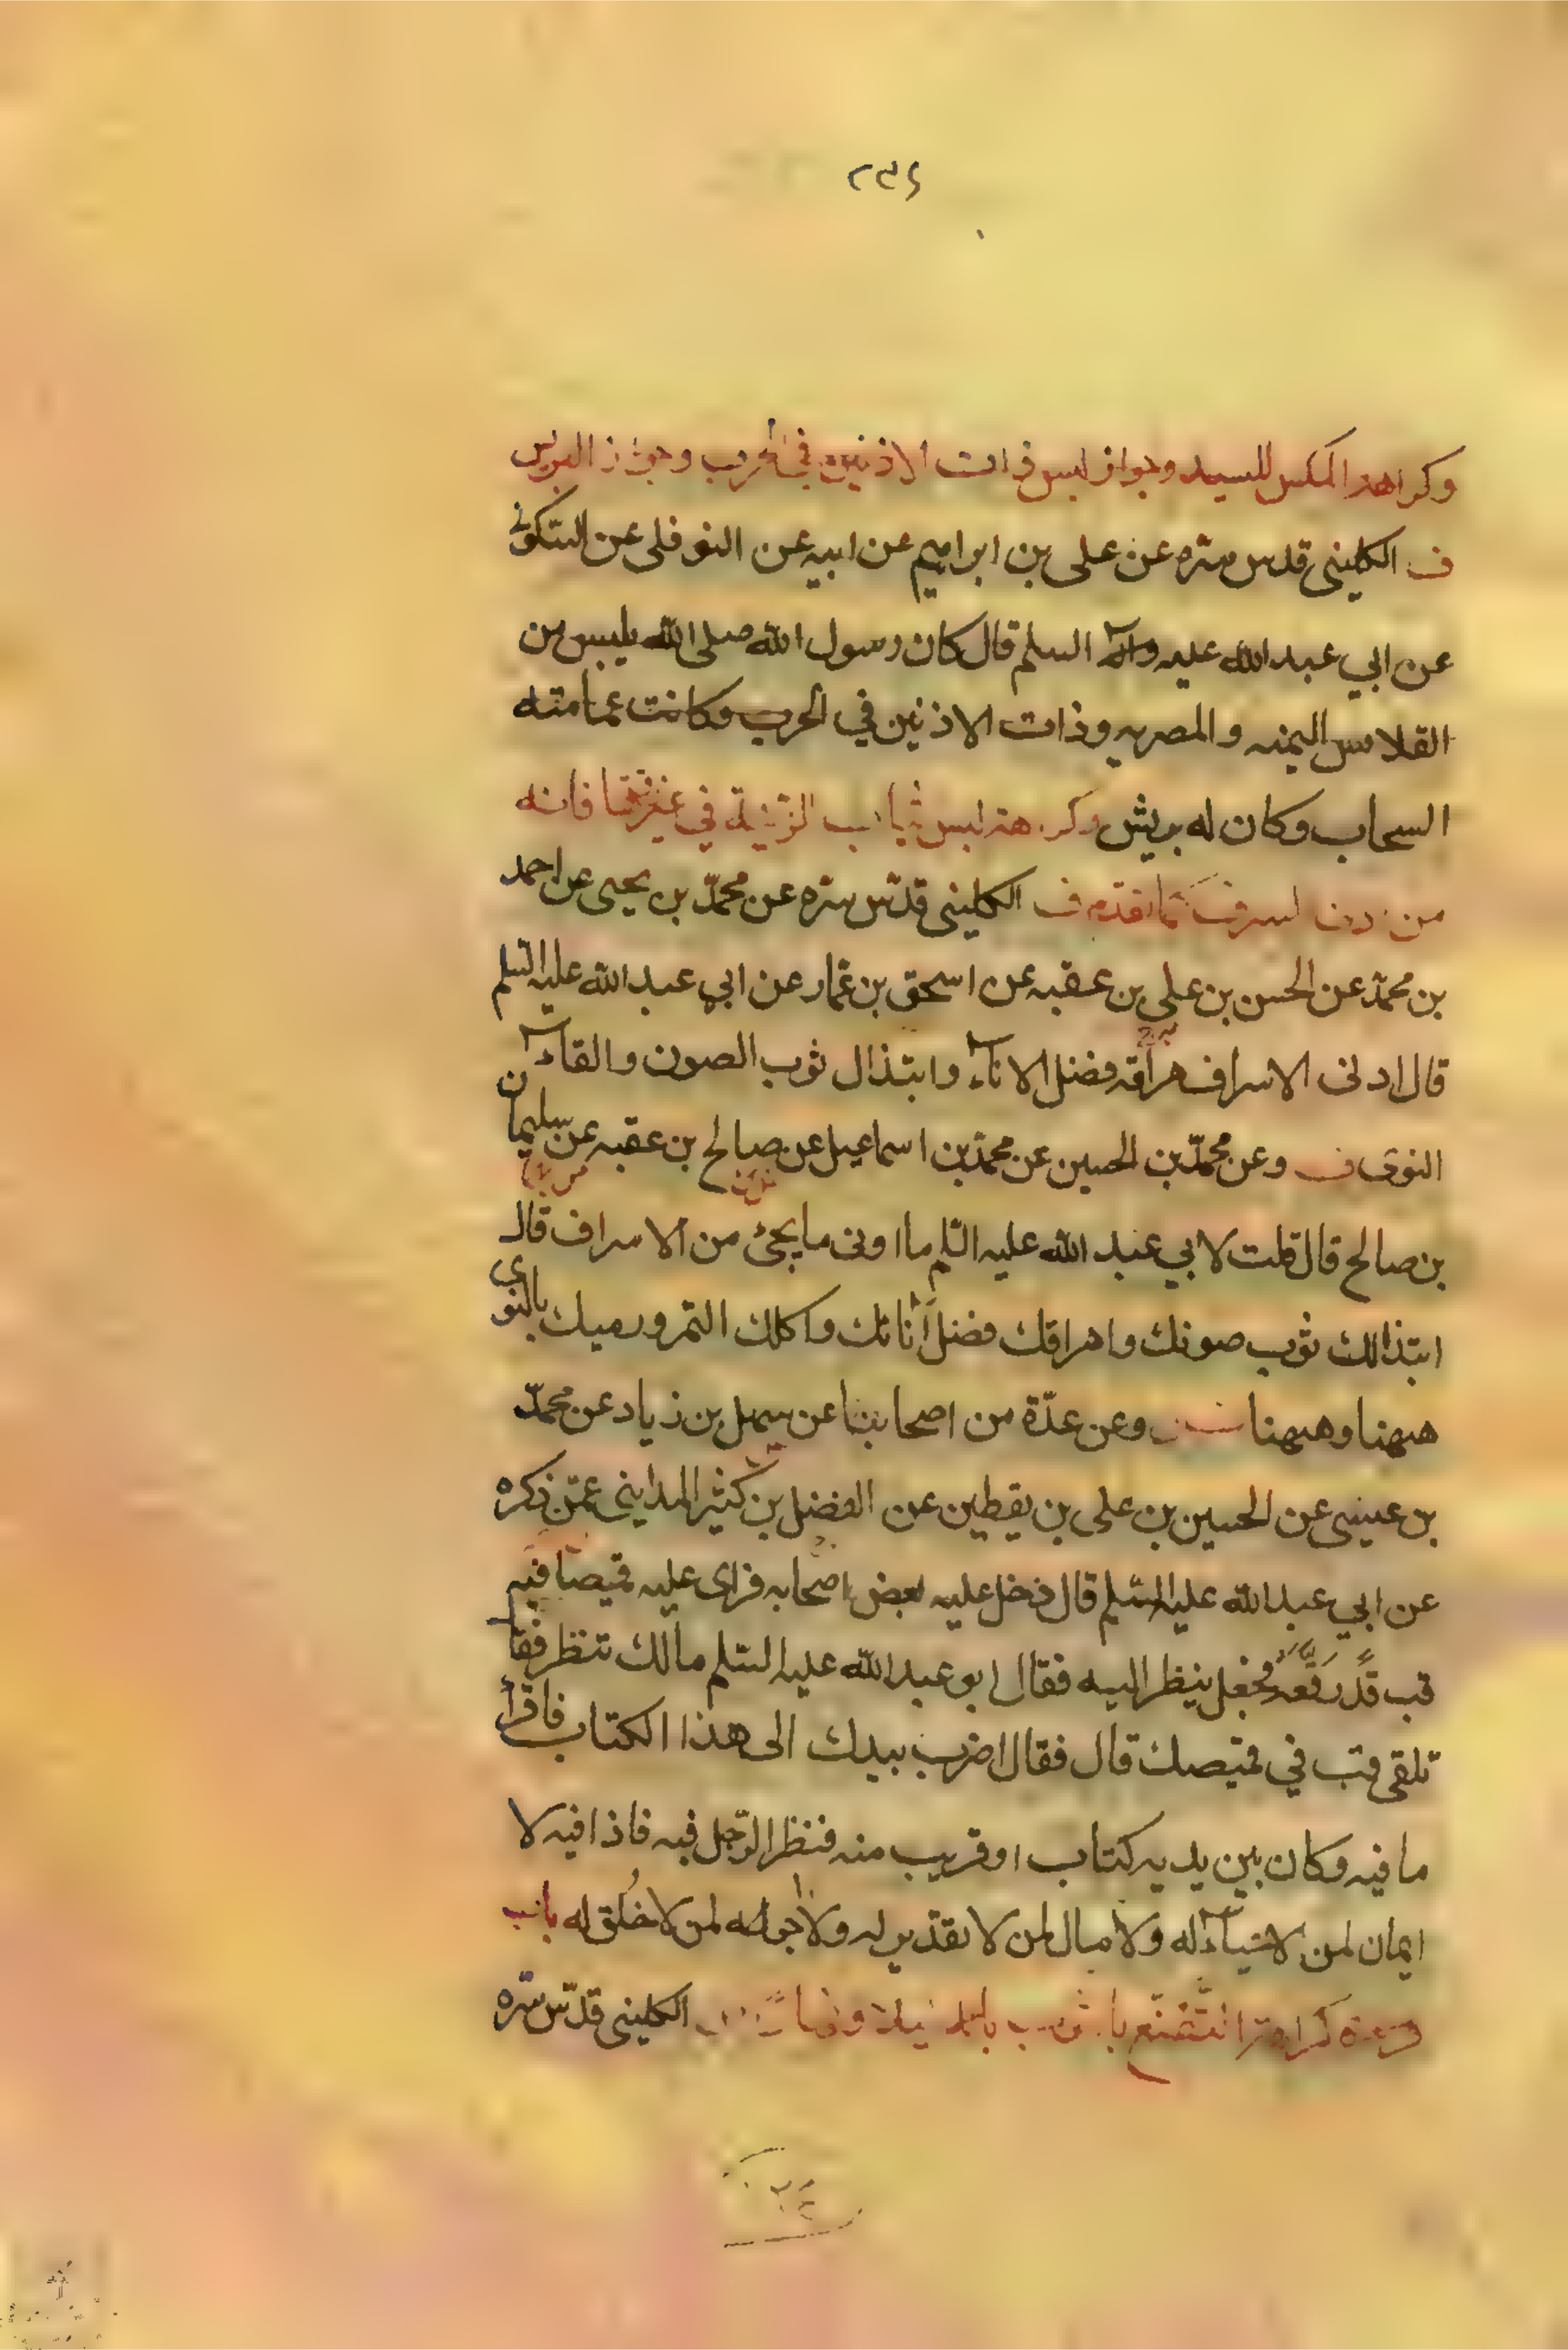 ٢٣٤
وكراهة المكس للسيد وجواز لبس ذات الاذنين في الحرب وجواز البرنس
ف الكليني قدس سره عن علي بن ابراهيم عن ابيه عن النوفلي عن السكوني
عن ابي عبد الله عليه وآله السلم قال كان رسول الله صلى الله يلبس من
القلانس اليمنيه والمصريه وذات الاذنين في الحرب وكانت عمامته
السحاب وكان له برنس وكراهة لبس ثياب الزينة في غيرها فانه
من السرف كما تقدم ف الكليني قدّس سره عن محمّد بن يحيى عن احمد
بن محمّد عن الحسن بن علي بن عقبه عن اسحق بن عمّار عن ابي عبد الله عليه السلم
قال ادنى الاسراف هراقه فضل الاناء وابتذال ثوب الصون والقاء
النوى ف وعن محمّد بن الحسين عن محمّد بن اسماعيل عن صالح بن عقبه عن سليمان
بن صالح قال قلت لابي عبد الله عليه السّلم ما ادنى ما يجئ من الاسراف قال
ابتذالك ثوب صونك واهراقك فضل انائك واكلك التمر ورميك بالنوى
هيهنا وهيهنا وعن عدّة من اصحابنا عن سهل بن زياد عن محمّد
بن عيسى عن الحسين بن علي بن يقطين عن الفضل بن كثير المدايني عمّن ذكره
عن ابي عبد الله عليه السّلم قال دخل عليه بعض اصحابه فراى عليه قميصا فيه
قب قد رقّعه فجعل ينظر اليه فقال ابو عبد الله عليه السّلم مالك تنظر فقا
تلقى قب في قميصك قال فقال اضرب بيدك الى هذا الكتاب فاقرأ
ما فيه وكان بين يديه كتاب او قريب منه فنظر الرّجل فيه فاذا فيه لا
ايمان لمن لا حياء له ولا مال لمن لا تقدير له ولا جديد لمن لا خلق له باب
الكليني قدّس سّره